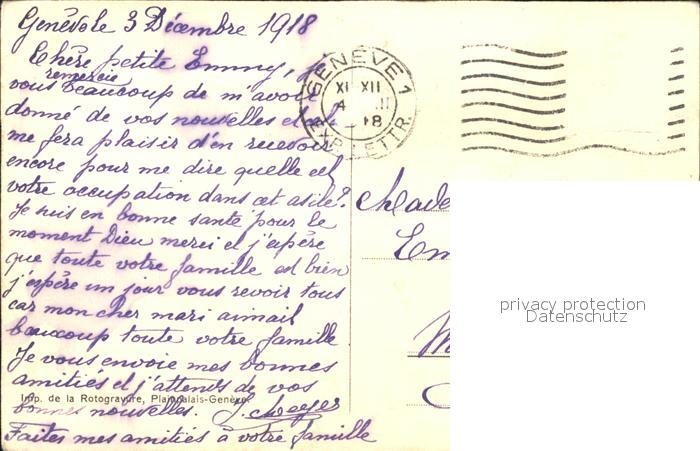 Genève le 3 Décembre 1918
Chère petite Emmy, je
remercie
vous beaucoup de m'avoir
donné de vos nouvelles et
me fera plaisir d'en recevoir
encore pour me dire quelle est
votre occupation dans cet asile?
Je suis en bonne santé pour le
moment Dieu merci et j'espère
que toute votre famille est bien
j'espère un jour vous revoir tous
car mon cher mari aimait
beaucoup toute votre famille
Je vous envoie mes bonnes
amitiés et j'attends de vos
bonnes nouvelles. J.
Faites mes amitiés à votre famille
Imp. de la Rotogravure, Plainpalais-Genève.
GENÈVE 1
XI XII
4 III
18
EXP. LETTR.
Em
privacy protection
Datenschutz